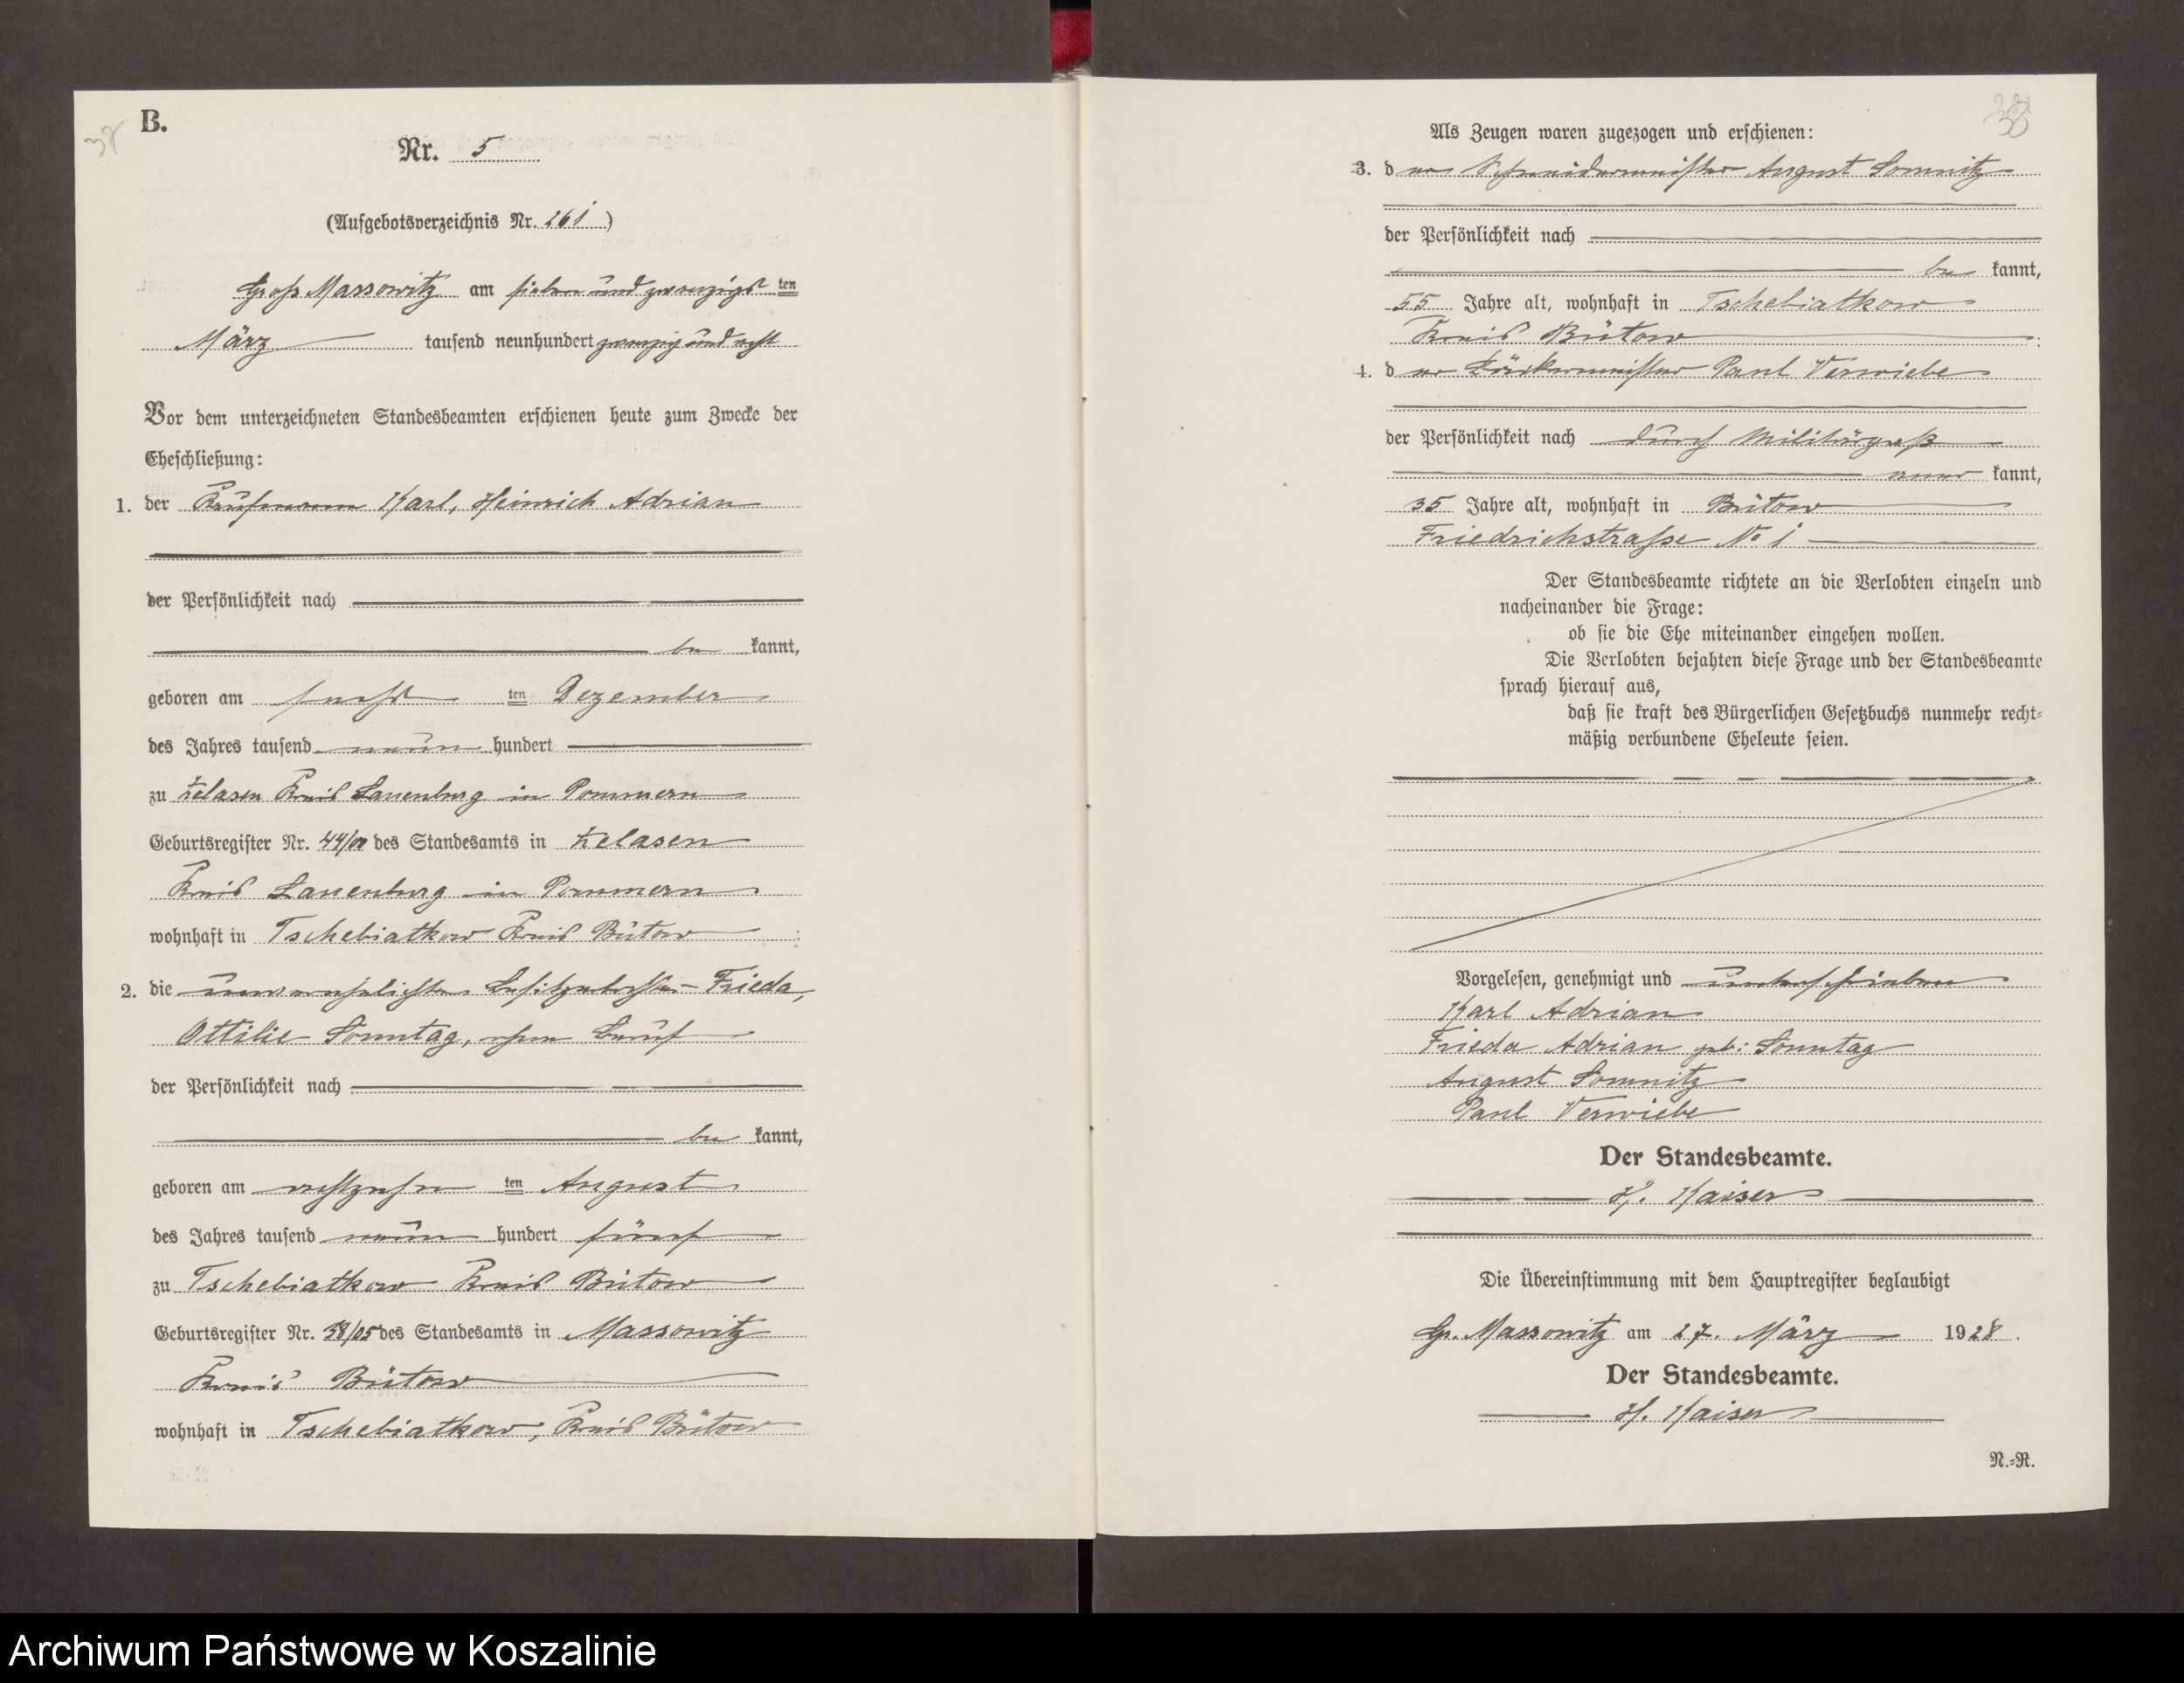 B.
38
Nr. 5
(Aufgebotsverzeichnis Nr. 261)
Groß Massowitz am sieben und zwanzigsten
März tausend neunhundert zwanzig und acht
Vor dem unterzeichneten Standesbeamten erschienen heute zum Zwecke der
Eheschließung:
1. der Kaufmann Karl, Heinrich Adrian
der Persönlichkeit nach
be kannt,
geboren am sechs ten Dezember
des Jahres tausend neun hundert
zu Zelasen Kreis Lauenburg in Pommern
Geburtsregister Nr. 44/00 des Standesamts in Zelasen
Kreis Lauenburg in Pommern
wohnhaft in Tschebiatkow Kreis Bütow :
2. die unverehelichte Besitzertochter Frieda,
Ottilie Sonntag, ohne Beruf
der Persönlichkeit nach
be kannt,
geboren am achtzehn ten August
des Jahres tausend neun hundert fünf
zu Tschebiatkow Kreis Bütow
Geburtsregister Nr. 38/05 des Standesamts in Massowitz
Kreis Bütow
wohnhaft in Tschebiatkow, Kreis Bütow
38
Als Zeugen waren zugezogen und erschienen:
3. der Schneidermeister August Somnitz
der Persönlichkeit nach
be kannt,
55 Jahre alt, wohnhaft in Tschebiatkow
Kreis Bütow :
4. der Bäckermeister Paul Verwiebe
der Persönlichkeit nach durch Militärpaß
aner kannt,
35 Jahre alt, wohnhaft in Bütow
Friedrichstraße No 1
Der Standesbeamte richtete an die Verlobten einzeln und
nacheinander die Frage:
ob sie die Ehe miteinander eingehen wollen.
Die Verlobten bejahten diese Frage und der Standesbeamte
sprach hierauf aus,
daß sie kraft des Bürgerlichen Gesetzbuchs nunmehr recht-
mäßig verbundene Eheleute seien.
Vorgelesen, genehmigt und unterschrieben
Karl Adrian
Frieda Adrian geb: Sonntag
August Somnitz
Paul Verwiebe
Der Standesbeamte.
H. Kaiser
Die Übereinstimmung mit dem Hauptregister beglaubigt
Gr. Massowitz am 27. März 1928.
Der Standesbeamte.
H. Kaiser
N.-R.
Archiwum Państwowe w Koszalinie